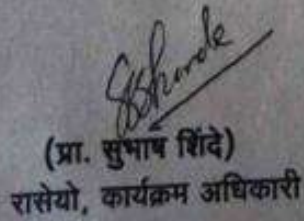 SShinde
(प्रा. सुभाष शिंदे)
रासेयो, कार्यक्रम अधिकारी